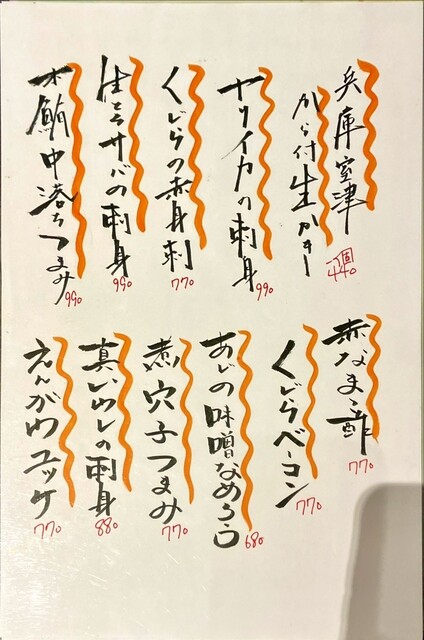 兵庫室津
から付生かきー
一個
440
ヤリイカの刺身
990
くじらの赤身刺
770
生とろサバの刺身
990
本鮪中落ちつまみ
990
赤なまこ酢
770
くじらベーコン
770
あじの味噌なめろう
680
煮穴子つまみ
770
真いわしの刺身
880
えんがわユッケ
770